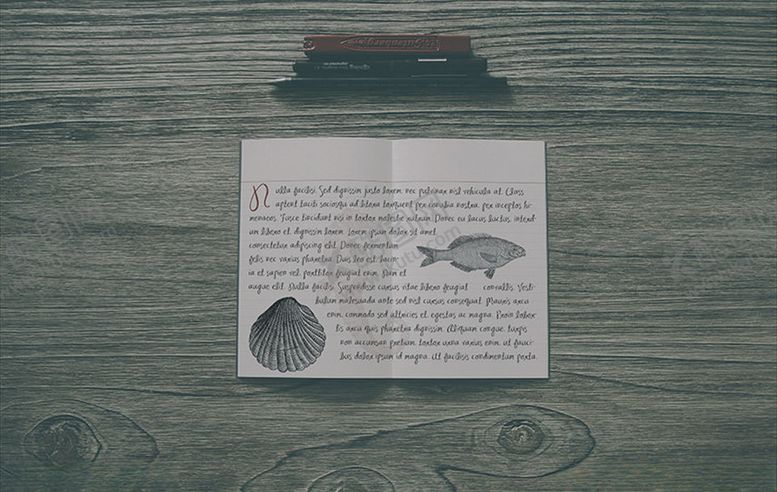 Nulla facilisi. Sed dignissim justo lorem, nec pulvinar nisl vehicula at. Class
aptent taciti sociosqu ad litora torquent per conubia nostra, per inceptos hi-
menaeos. Fusce tincidunt nisi in tortor molestie rutrum. Donec eu lacus luctus, interd-
um libero et, dignissim lorem. Lorem ipsum dolor sit amet,
consectetur adipiscing elit. Donec fermentum
felis nec varius pharetra. Duis leo est, lacin-
ia et sapien vel, porttitor feugiat enim. Nam et
augue elit. Nulla facilisi. Suspendisse cursus vitae libero feugiat convallis. Vesti-
bulum malesuada ante sed nisl cursus consequat. Mauris arcu
enim, commodo sed ultricies et, egestas ac magna. Proin lobor-
tis arcu quis pharetra dignissim. Aliquam congue, turpis
non accumsan pretium, tortor urna varius enim, ut fauci-
bus dolor ipsum id magna. Ut facilisis condimentum porta.